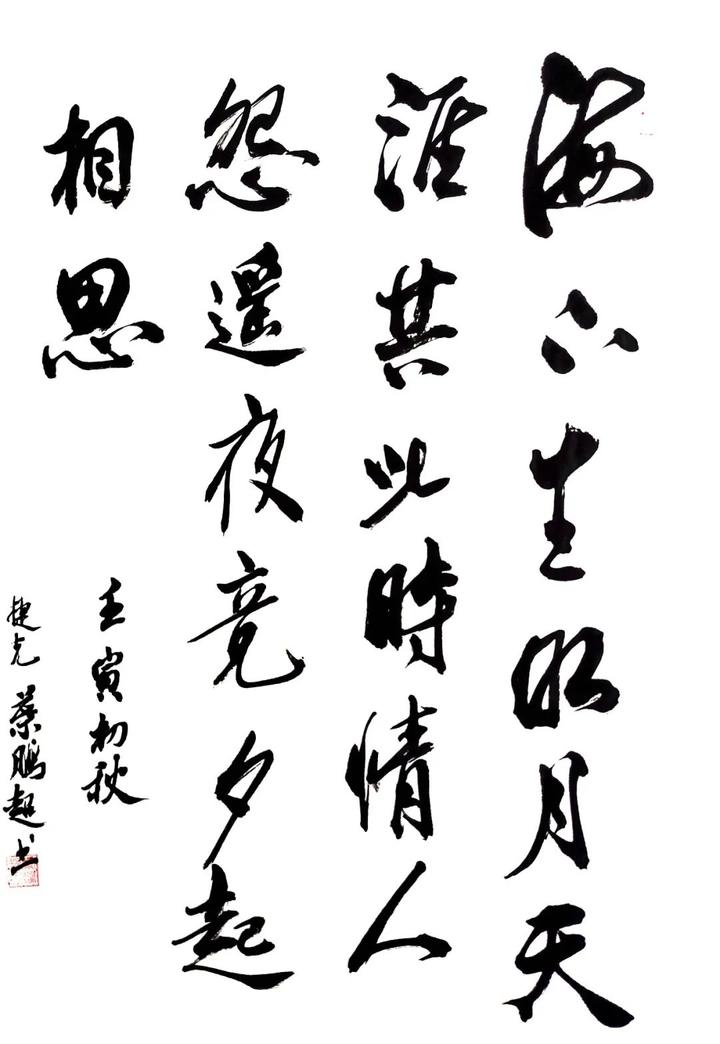 海上生明月天
涯共此時情人
怨遙夜竟夕起
相思
壬寅初秋
捷克 蔡鵬超书